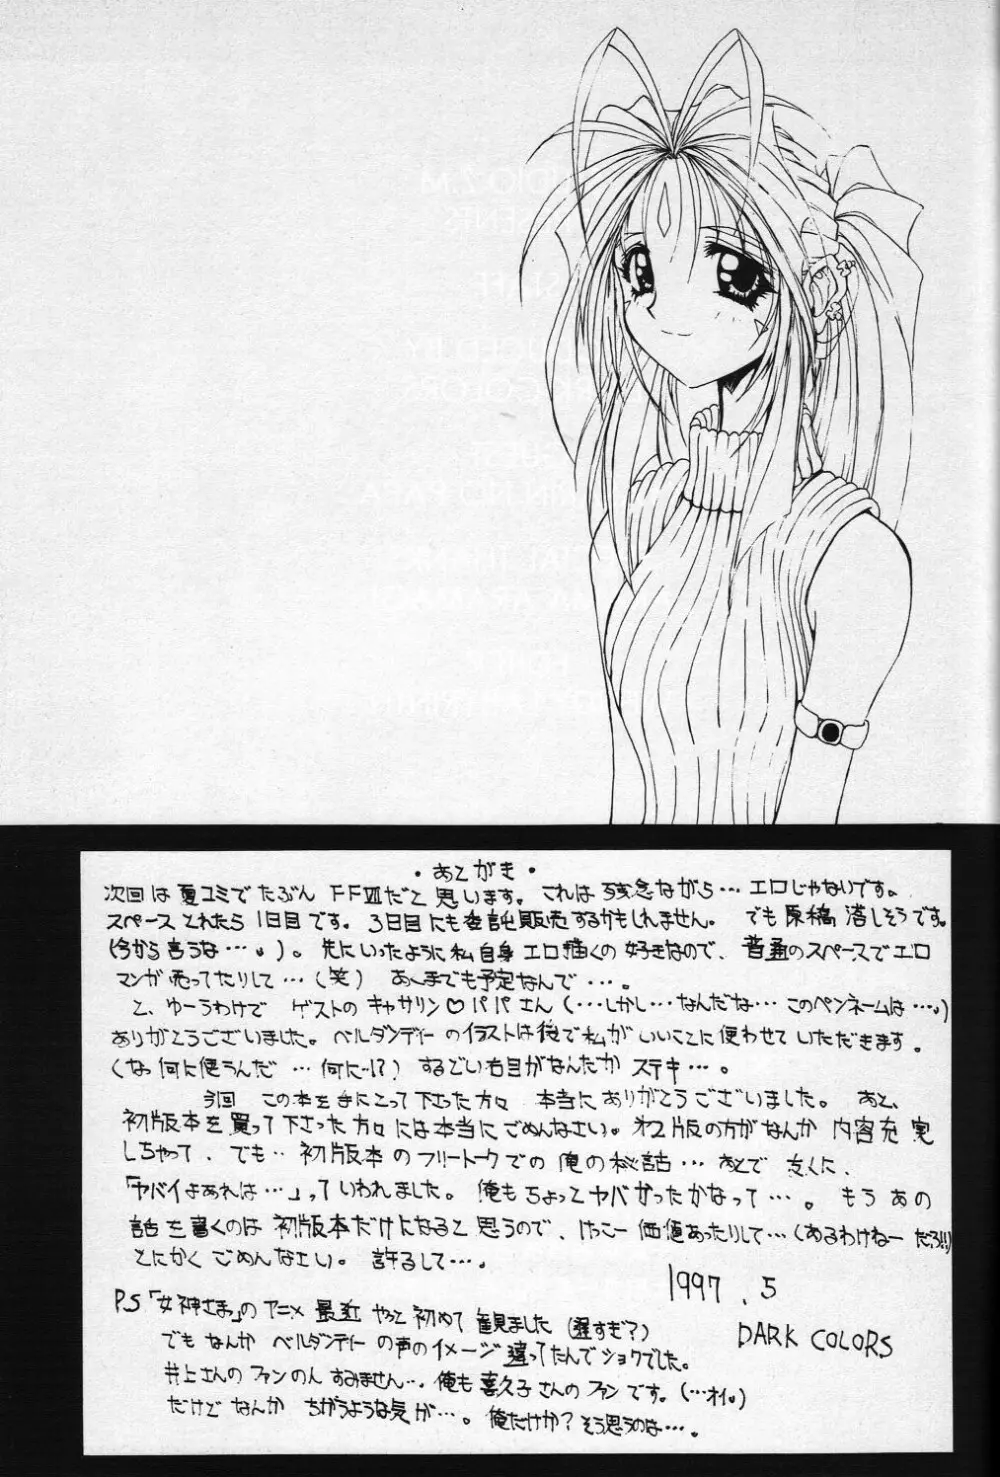 ・あとがき・
次回は夏コミでたぶん FFⅦだと思います。これは残念ながら…エロじゃないです。
スペースとれたら1日目です。3日目にも委託販売するかもしれません。でも原稿落しそうです。
(今から言うな…。)。先にいったように私自身エロ描くの好きなので、普通のスペースでエロ
マンガ売ってたりして…(笑) あくまでも予定なんで…。
と、ゆーうわけで ゲストのキャサリン♡パパさん(…しかし…なんだな…このペンネームは…。)
ありがとうございました。ベルダンディーのイラストは後で私がいいことに使わせていただきます。
(なっ何に使うんだ…何に…!?) するどい右目がなんだか ステキ…。
今回 この本を手にとって下さった方々 本当にありがとうございました。あと、
初版本を買って下さった方々には本当にごめんなさい。オフ版の方がなんか 内容充実
しちゃって、でも… 初版本のフリートークでの俺の秘話…あとで 友くに、
「ヤバイよあれは…」っていわれました。俺もちょっとヤバかったかなって…。もうあの
話を書くのは初版本だけになると思うので、けっこー価値あったりして…(あるわけねーだろ!!)
とにかくごめんなさい。許るして…。
1997.5
DARK COLORS
P.S「女神さまっ」のアニメ最近やっと初めて観ました(遅すぎ?)
でもなんかベルダンディーの声のイメージ違ってたんでショックでした。
井上さんのファンのんすみません…。俺も喜久子さんのファンです。(…オイ。)
だけどなんか ちがうような気が…。俺だけか?そう思うのは…。